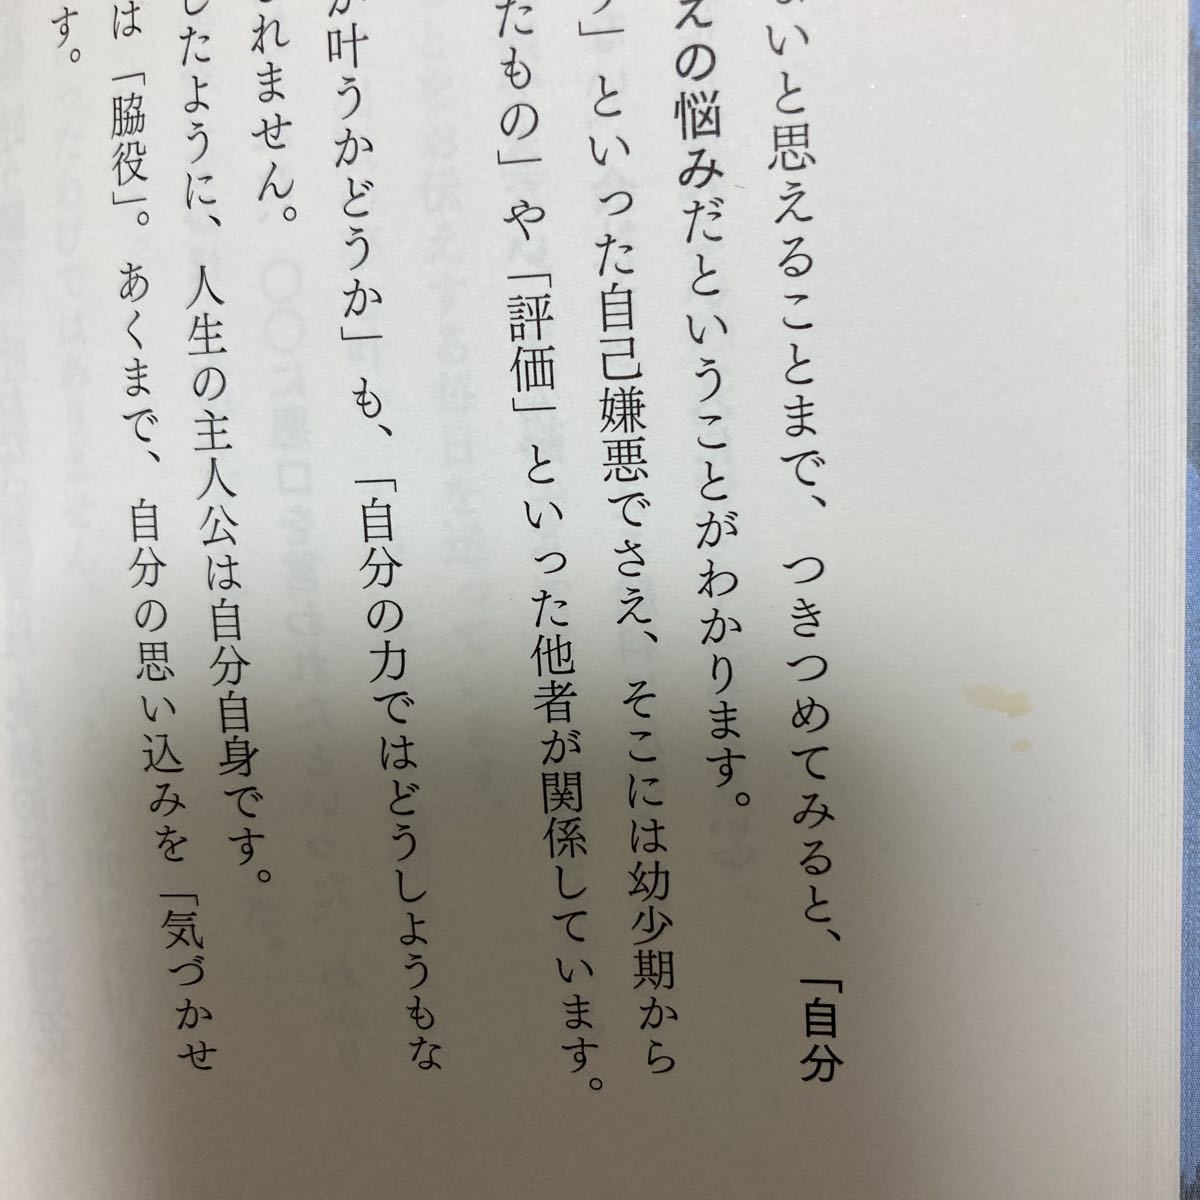 ないと思えることまで、つきつめてみると、「自分
えの悩みだということがわかります。
」といった自己嫌悪でさえ、そこには幼少期から
たもの」や「評価」といった他者が関係しています。
が叶うかどうか」も、「自分の力ではどうしようもな
れません。
したように、人生の主人公は自分自身です。
は「脇役」。あくまで、自分の思い込みを「気づかせ
す。